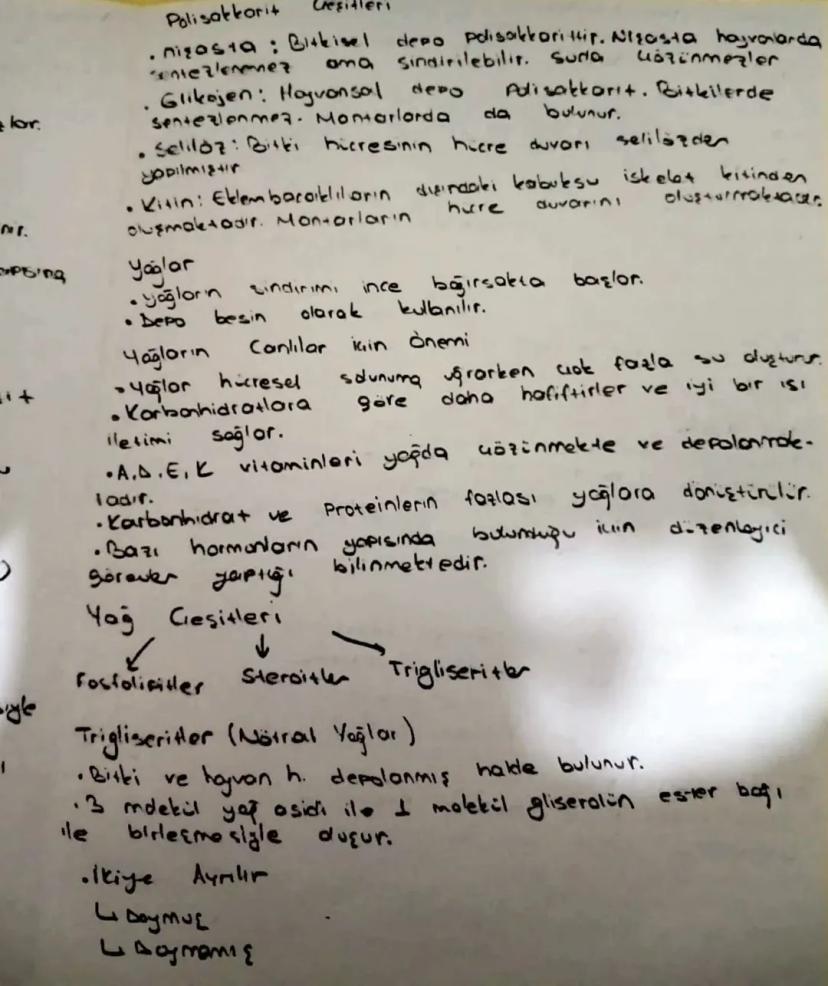 Polisakkarit Çeşitleri
• Nişasta : Bitkisel depo polisakkarittir. Nişasta hayvanlarda
sentezlenmez ama sindirilebilir. Suda çözünmezler
• Glikojen : Hayvansal depo Polisakkarit. Bitkilerde
sentezlenmez. Mantarlarda da bulunur.
• Selilöz : Bitki hücresinin hücre duvarı selilözden
yapılmıştır
• Kitin : Eklembacaklıların dışındaki kabuksu iskelet kitinden
oluşmaktadır. Mantarların hücre duvarını oluşturmaktadır.
Yağlar
• Yağların sindirimi ince bağırsakta başlar.
• Depo besin olarak kullanılır.
Yağların Canlılar için Önemi
• Yağlar hücresel solunuma uğrarken çok fazla su oluşturur.
• Karbonhidratlara göre daha hafiftirler ve iyi bir ısı
iletimi sağlar.
• A, D, E, K vitaminleri yağda çözünmekte ve depolanmak-
tadır.
• Karbonhidrat ve Proteinlerin fazlası yağlara dönüştürülür.
• Bazı hormonların yapısında bulunduğu için düzenleyici
görevler yaptığı bilinmektedir.
Yağ Çeşitleri
Fosfolipitler Steroitler Trigliseritler
Trigliseritler (Nötral Yağlar)
• Bitki ve hayvan h. depolanmış halde bulunur.
• 3 molekül yağ asidi ile 1 molekül gliserolün ester bağı
ile birleşmesiyle oluşur.
• İkiye Ayrılır
↳ Doymuş
↳ Doymamış